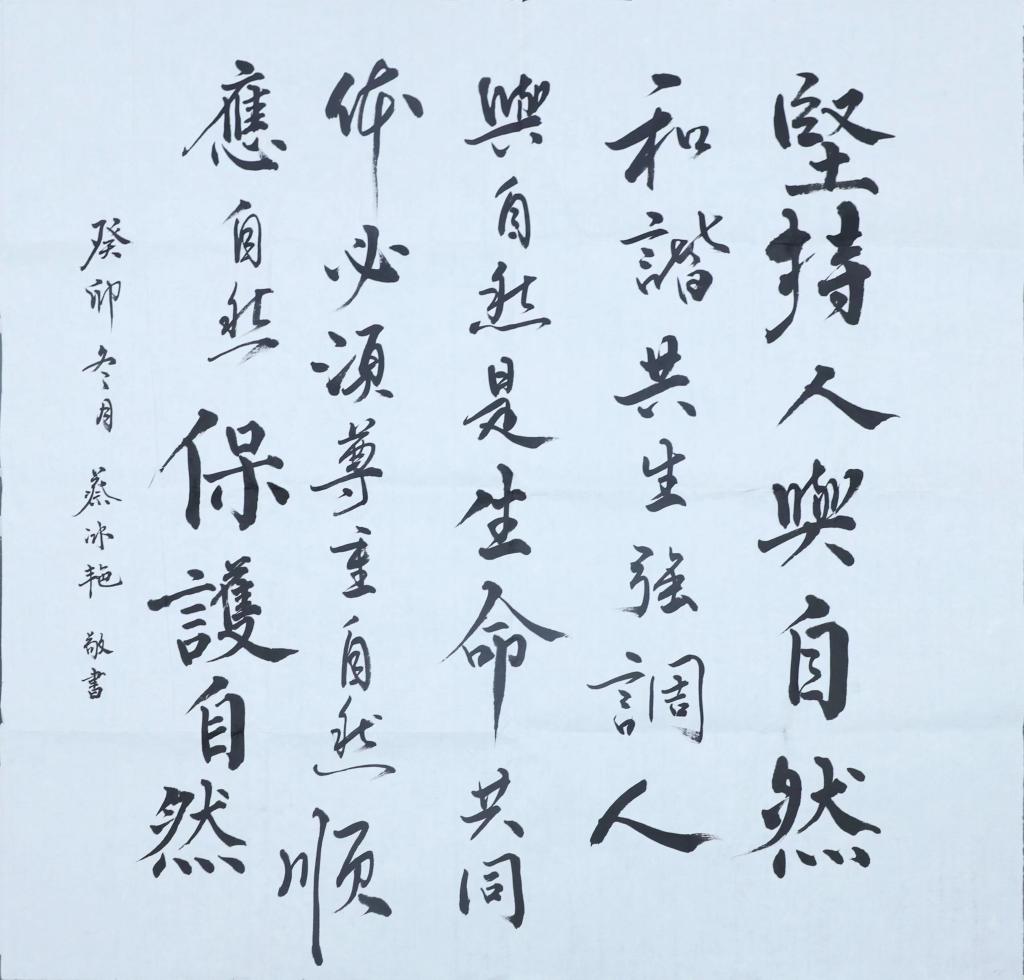 堅持人與自然
和諧共生强調人
與自然是生命共同
体必須尊重自然順
應自然保護自然
癸卯冬月 蔡冰艳 敬書